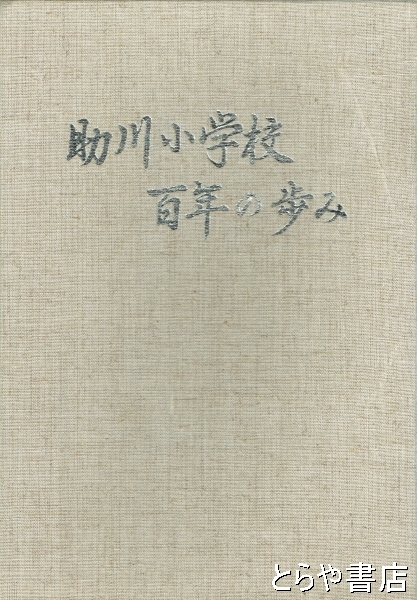 助川小学校
百年の歩み
とらや書店